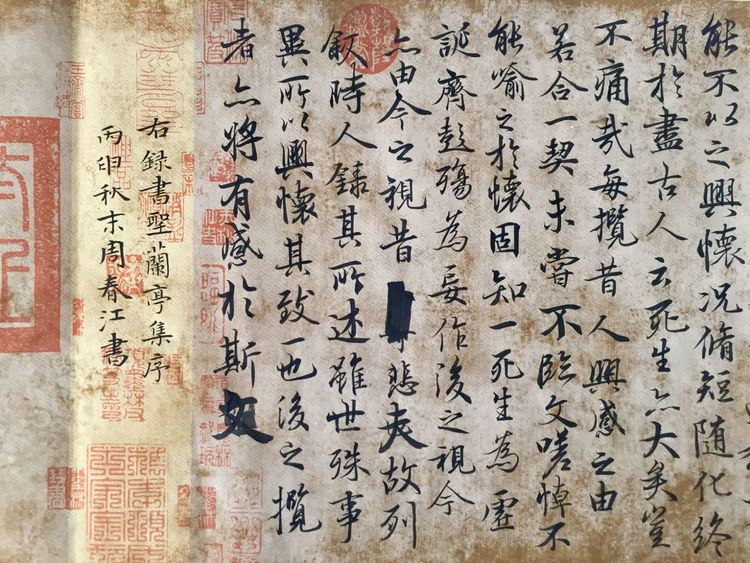 能不以之興懷況脩短随化終
期於盡古人云死生亦大矣豈
不痛哉每攬昔人興感之由
若合一契未嘗不臨文嗟悼不
能喻之於懷固知一死生為虛
誕齊彭殤為妄作後之視今
亦由今之視昔悲夫故列
敘時人錄其所述雖世殊事
異所以興懷其致一也後之攬
者亦將有感於斯文
右録書聖蘭亭集序
丙申秋末周春江書